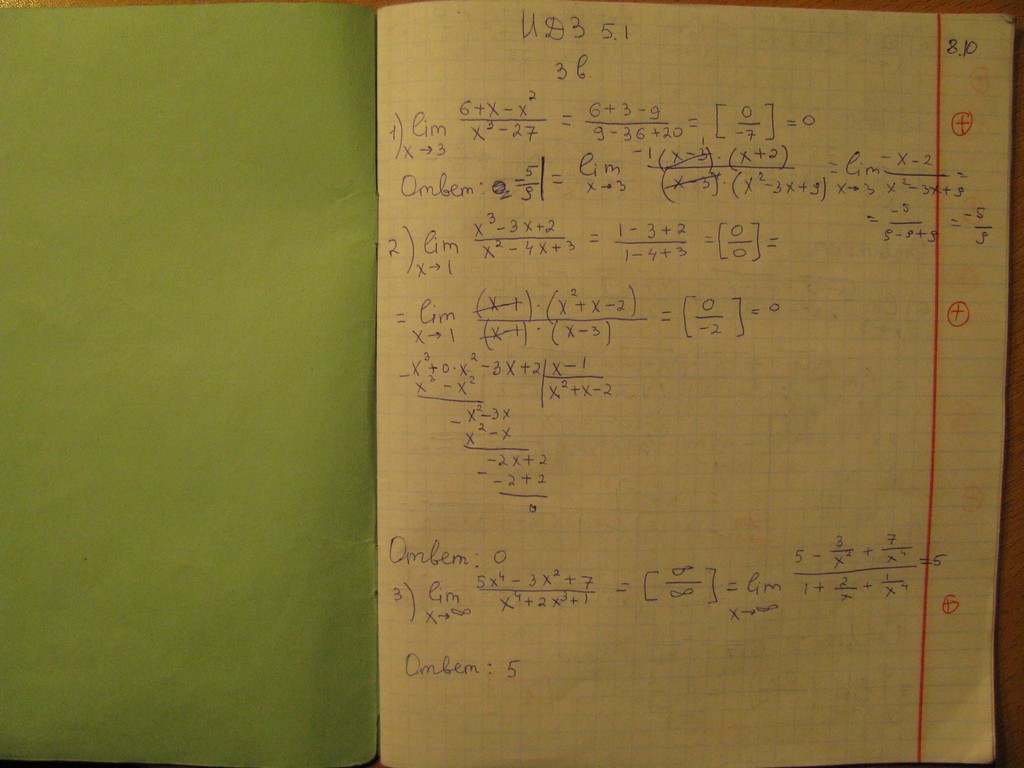 ИДЗ 5.1
8.10
3 в.
1) lim x→3 (6+x−x²)/(x³−27) = (6+3−9)/(9−36+20) = [0/−7] = 0
Ответ: −5/9 | = lim x→3 (−1(x−3)·(x+2))/((x−3)·(x²−3x+9)) = lim x→3 (−x−2)/(x²−3x+9) =
= −5/(9−9+9) = −5/9
2) lim x→1 (x³−3x+2)/(x²−4x+3) = (1−3+2)/(1−4+3) = [0/0] =
= lim x→1 ((x−1)·(x²+x−2))/((x−1)·(x−3)) = [0/−2] = 0
−x³+0·x²−3x+2 | x−1
x³−x² | x²+x−2
−x²−3x
x²−x
−2x+2
− −2+2
0
Ответ: 0
3) lim x→∞ (5x⁴−3x²+7)/(x⁴+2x³+1) = [∞/∞] = lim x→∞ (5−3/x²+7/x⁴)/(1+2/x+1/x⁴) = 5
Ответ: 5